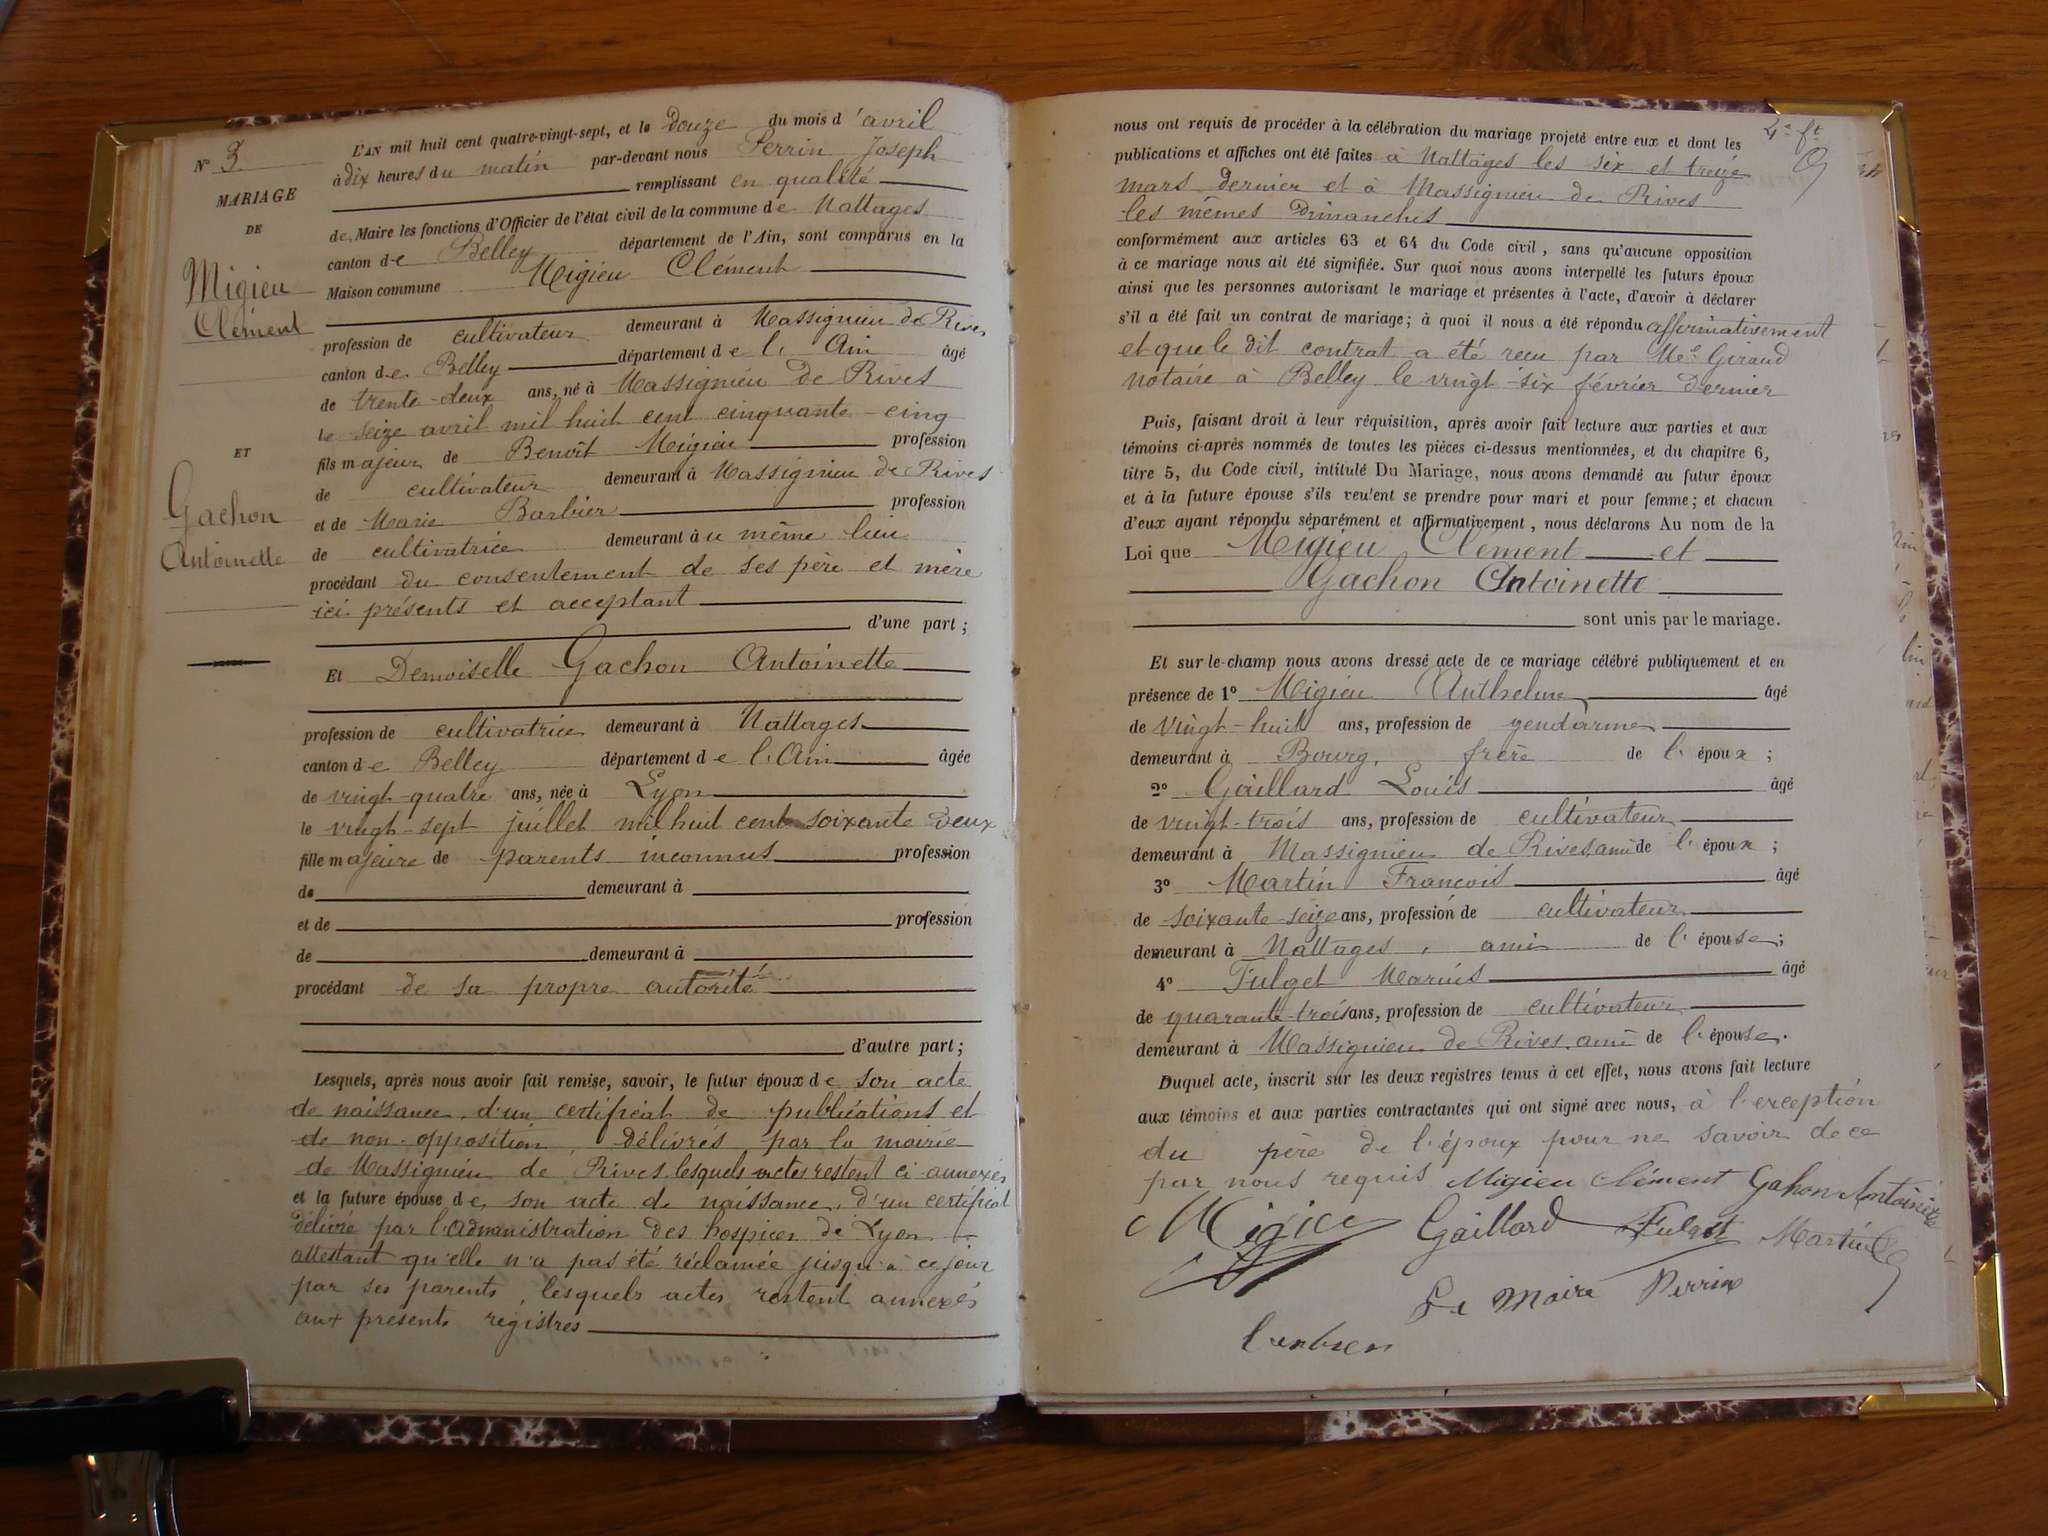 N° 3.
MARIAGE
DE
Migieu
Clément
ET
Gachon
Antoinette
L'AN mil huit cent quatre-vingt-sept, et le Douze du mois d'avril
à dix heures du matin par-devant nous Perrin Joseph
remplissant en qualité
de Maire les fonctions d'Officier de l'état civil de la commune de Nattages
canton de Belley département de l'Ain, sont comparus en la
Maison commune Migieu Clément
profession de cultivateur demeurant à Massignieu de Rives
canton de Belley département de l'Ain âgé
de trente-deux ans, né à Massignieu de Rives
le seize avril mil huit cent cinquante-cinq
fils majeur de Benoît Migieu profession
de cultivateur demeurant à Massignieu de Rives
et de Marie Barbier profession
de cultivatrice demeurant au même lieu
procédant du consentement de ses père et mère
ici présents et acceptant
d'une part;
Et Demoiselle Gachon Antoinette
profession de cultivatrice demeurant à Nattages
canton de Belley département de l'Ain âgée
de vingt-quatre ans, née à Lyon
le vingt-sept juillet mil huit cent soixante deux
fille majeure de parents inconnus profession
de demeurant à
et de profession
de demeurant à
procédant de sa propre autorité
d'autre part;
Lesquels, après nous avoir fait remise, savoir, le futur époux de son acte
de naissance, d'un certificat de publications et
de non-opposition, délivrés par la mairie
de Massignieu de Rives, lesquels actes restent ci-annexés
et la future épouse de son acte de naissance, d'un certificat
délivré par l'administration des hospices de Lyon
attestant qu'elle n'a pas été réclamée jusqu'à ce jour
par ses parents, lesquels actes restent annexés
aux présents registres
4e ft
nous ont requis de procéder à la célébration du mariage projeté entre eux et dont les
publications et affiches ont été faites à Nattages les six et treize
mars dernier et à Massignieu de Rives
les mêmes Dimanches
conformément aux articles 63 et 64 du Code civil, sans qu'aucune opposition
à ce mariage nous ait été signifiée. Sur quoi nous avons interpellé les futurs époux
ainsi que les personnes autorisant le mariage et présentes à l'acte, d'avoir à déclarer
s'il a été fait un contrat de mariage; à quoi il nous a été répondu affirmativement
et que le dit contrat a été reçu par Me Giraud
notaire à Belley le vingt-six février dernier
Puis, faisant droit à leur réquisition, après avoir fait lecture aux parties et aux
témoins ci-après nommés de toutes les pièces ci-dessus mentionnées, et du chapitre 6,
titre 5, du Code civil, intitulé Du Mariage, nous avons demandé au futur époux
et à la future épouse s'ils veulent se prendre pour mari et pour femme; et chacun
d'eux ayant répondu séparément et affirmativement, nous déclarons Au nom de la
Loi que Migieu Clément et
Gachon Antoinette
sont unis par le mariage.
Et sur-le-champ nous avons dressé acte de ce mariage célébré publiquement et en
présence de 1° Migieu Anthelme âgé
de vingt-huit ans, profession de gendarme
demeurant à Bourg, frère de l'époux;
2° Gaillard Louis âgé
de vingt-trois ans, profession de cultivateur
demeurant à Massignieu de Rives, ami de l'époux;
3° Martin François âgé
de soixante-seize ans, profession de cultivateur
demeurant à Nattages, ami de l'épouse;
4° Fulget Marius âgé
de quarante-trois ans, profession de cultivateur
demeurant à Massignieu de Rives, ami de l'épouse.
Duquel acte, inscrit sur les deux registres tenus à cet effet, nous avons fait lecture
aux témoins et aux parties contractantes qui ont signé avec nous, à l'exception
du père de l'époux pour ne savoir de ce
par nous requis Migieu Clément Gahon Antoinette
Migieu Gaillard Fulget Martin
Le Maire Perrin